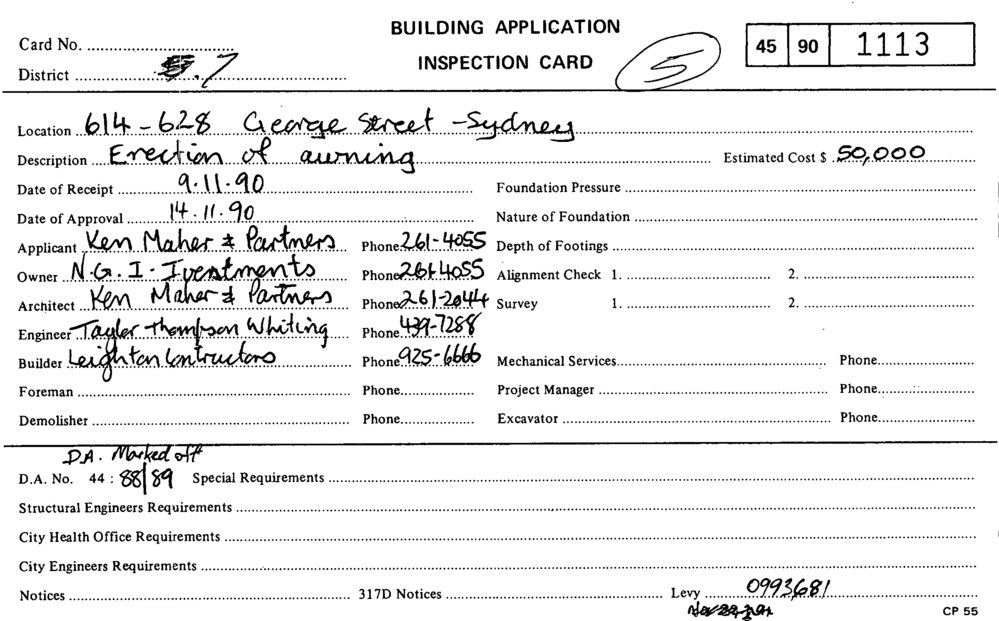 BUILDING APPLICATION
INSPECTION CARD
5
45 90 1113
Card No.
District .7
Location 614-628 George Street - Sydney
Description Erection of awning Estimated Cost $ 50,000
Date of Receipt 9.11.90 Foundation Pressure
Date of Approval 14.11.90 Nature of Foundation
Applicant Ken Maher & Partners Phone 261-4055 Depth of Footings
Owner N.G.I. Ivestments Phone 261-4055 Alignment Check 1. 2.
Architect Ken Maher & Partners Phone 261-2044 Survey 1. 2.
Engineer Taylor Thompson Whiting Phone 439-7288
Builder Leighton Contructors Phone 925-6666 Mechanical Services Phone
Foreman Phone Project Manager Phone
Demolisher Phone Excavator Phone
D.A. Marked off
D.A. No. 44 : 88/89 Special Requirements
Structural Engineers Requirements
City Health Office Requirements
City Engineers Requirements
Notices 317D Notices Levy 0993681
CP 55